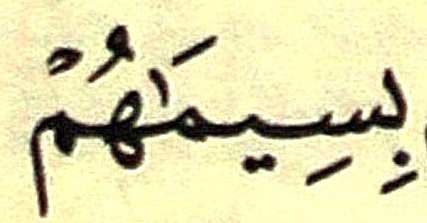 بِسِيمَٰهُمْ